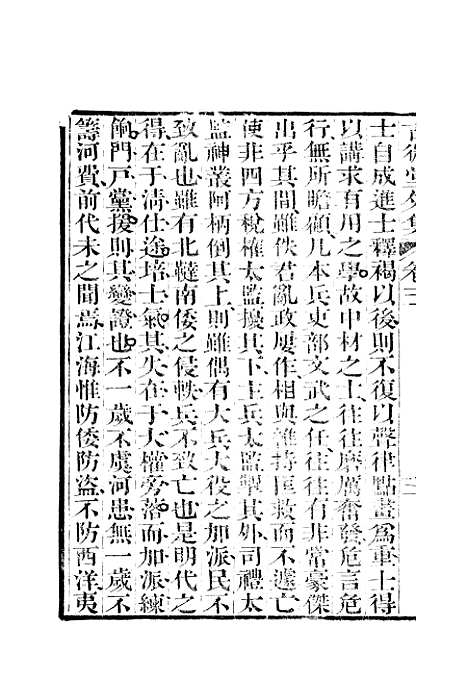 古微堂外集 卷三
士自成進士釋褐以後則不復以聲律點畫爲重士得
以講求有用之學故中材之士往往磨厲奮發危言危
行無所瞻顧凡本兵吏部文武之任往往有非常豪傑
出乎其間雖佚君亂政屢作相與維持匡救而不遽亡
使非四方稅榷太監擾其下主兵太監掣其外司禮太
監神叢阿柄倒其上則雖偶有大兵大役之加派民不
致亂也雖有北韃南倭之侵軼兵不致亡也是明代之
得在于清仕途培士氣其失在于大權旁落而加派練
餉門戸黨援則其變證也不一歲不虞河患無一歲不
籌河費前代未之聞焉江海惟防倭防盜不防西洋夷